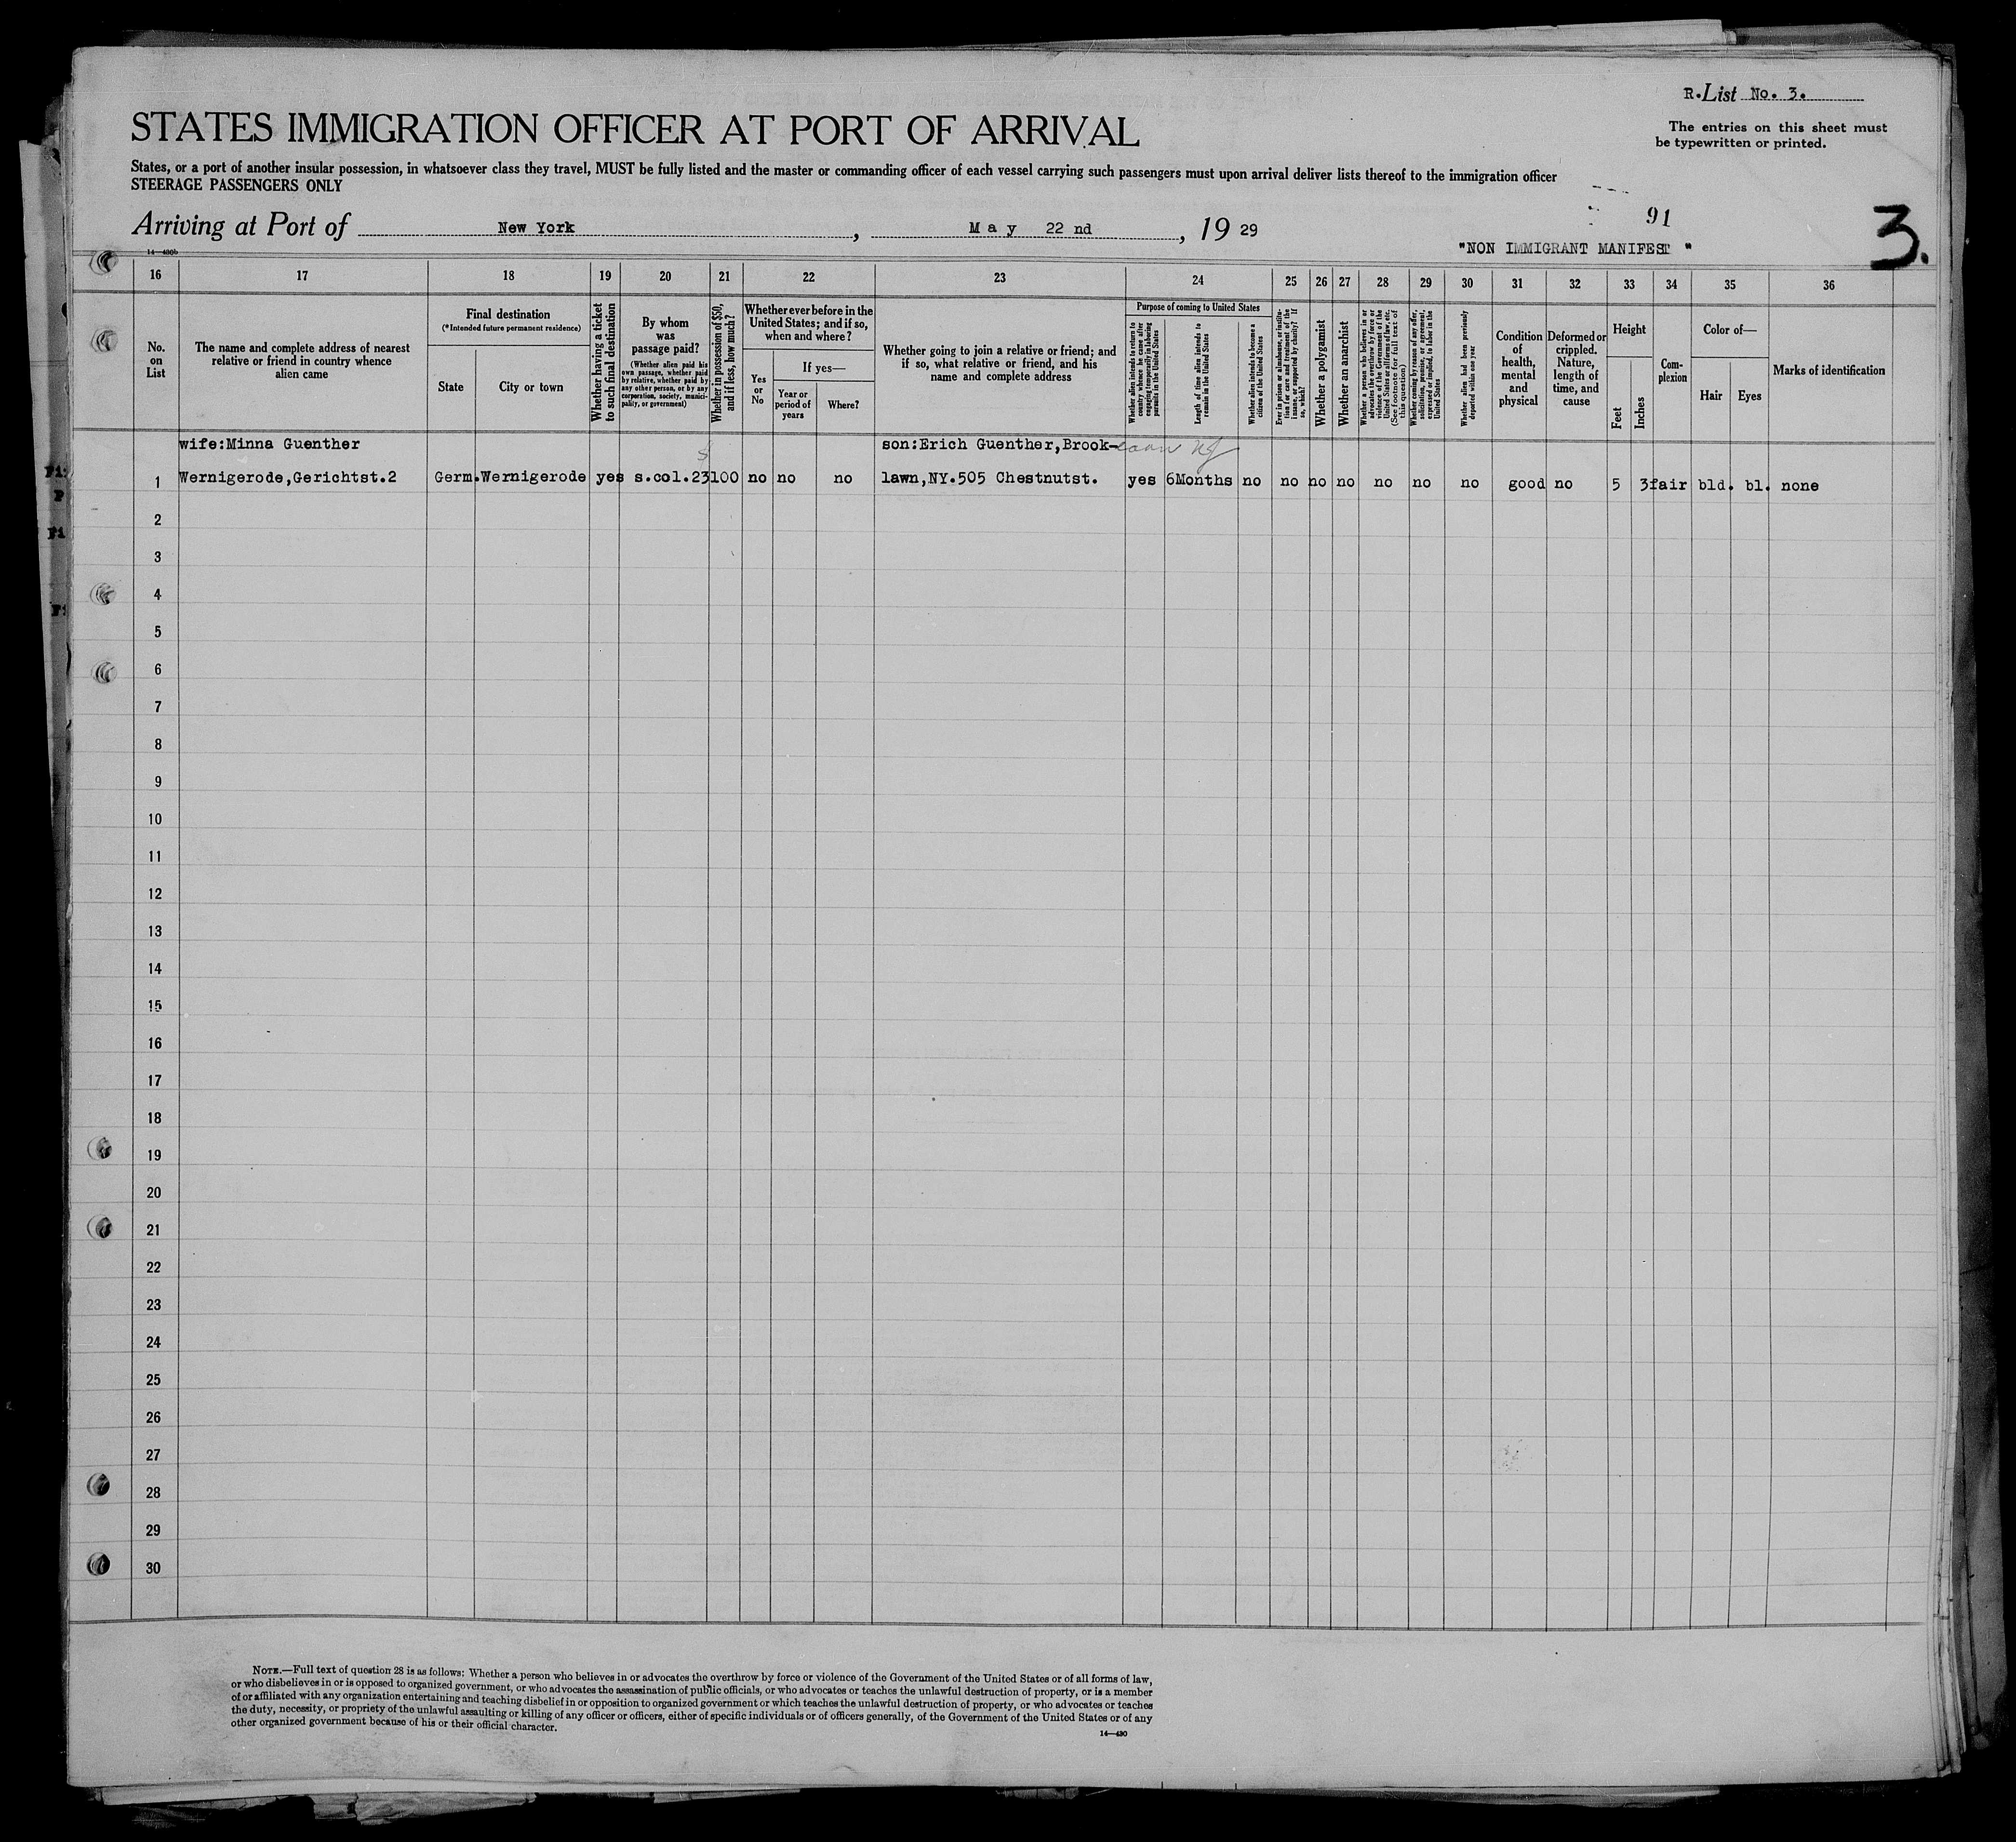 R. List No. 3.
STATES IMMIGRATION OFFICER AT PORT OF ARRIVAL
The entries on this sheet must
be typewritten or printed.
States, or a port of another insular possession, in whatsoever class they travel, MUST be fully listed and the master or commanding officer of each vessel carrying such passengers must upon arrival deliver lists thereof to the immigration officer
STEERAGE PASSENGERS ONLY
Arriving at Port of New York, May 22 nd, 19 29
91
3.
"NON IMMIGRANT MANIFEST "
14—430b
16 17 18 19 20 21 22 23 24 25 26 27 28 29 30 31 32 33 34 35 36
No.
on
List
The name and complete address of nearest
relative or friend in country whence
alien came
Final destination
(*Intended future permanent residence)
State
City or town
Whether having a ticket
to such final destination
By whom
was
passage paid?
(Whether alien paid his
own passage, whether paid
by relative, whether paid by
any other person, or by any
corporation, society, munici-
pality, or government)
Whether in possession of $50,
and if less, how much?
Whether ever before in the
United States; and if so,
when and where?
Yes
or
No
If yes—
Year or
period of
years
Where?
Whether going to join a relative or friend; and
if so, what relative or friend, and his
name and complete address
Purpose of coming to United States
Whether alien intends to return to
country whence he came after
engaging temporarily in laboring
pursuits in the United States
Length of time alien intends to
remain in the United States
Whether alien intends to become a
citizen of the United States
Ever in prison or almshouse, or institu-
tion for care and treatment of the
insane, or supported by charity? If
so, which?
Whether a polygamist
Whether an anarchist
Whether a person who believes in or
advocates the overthrow by force or
violence of the Government of the
United States or all forms of law, etc.
(See footnote for full text of
this question)
Whether coming by reason of any offer,
solicitation, promise, or agreement,
expressed or implied, to labor in the
United States
Whether alien had been previously
deported within one year
Condition
of
health,
mental
and
physical
Deformed or
crippled.
Nature,
length of
time, and
cause
Height
Feet
Inches
Com-
plexion
Color of—
Hair
Eyes
Marks of identification
wife:Minna Guenther son:Erich Guenther,Brook- NJ
1 Wernigerode,Gerichtst.2 Germ.Wernigerode yes s.col.23 $ 100 no no no lawn,NY.505 Chestnutst. yes 6Months no no no no no no no good no 5 3 fair bld. bl. none
2
3
4
5
6
7
8
9
10
11
12
13
14
15
16
17
18
19
20
21
22
23
24
25
26
27
28
29
30
NOTE.—Full text of question 28 is as follows: Whether a person who believes in or advocates the overthrow by force or violence of the Government of the United States or of all forms of law,
or who disbelieves in or is opposed to organized government, or who advocates the assassination of public officials, or who advocates or teaches the unlawful destruction of property, or is a member
of or affiliated with any organization entertaining and teaching disbelief in or opposition to organized government or which teaches the unlawful destruction of property, or who advocates or teaches
the duty, necessity, or propriety of the unlawful assaulting or killing of any officer or officers, either of specific individuals or of officers generally, of the Government of the United States or of any
other organized government because of his or their official character.
14—430